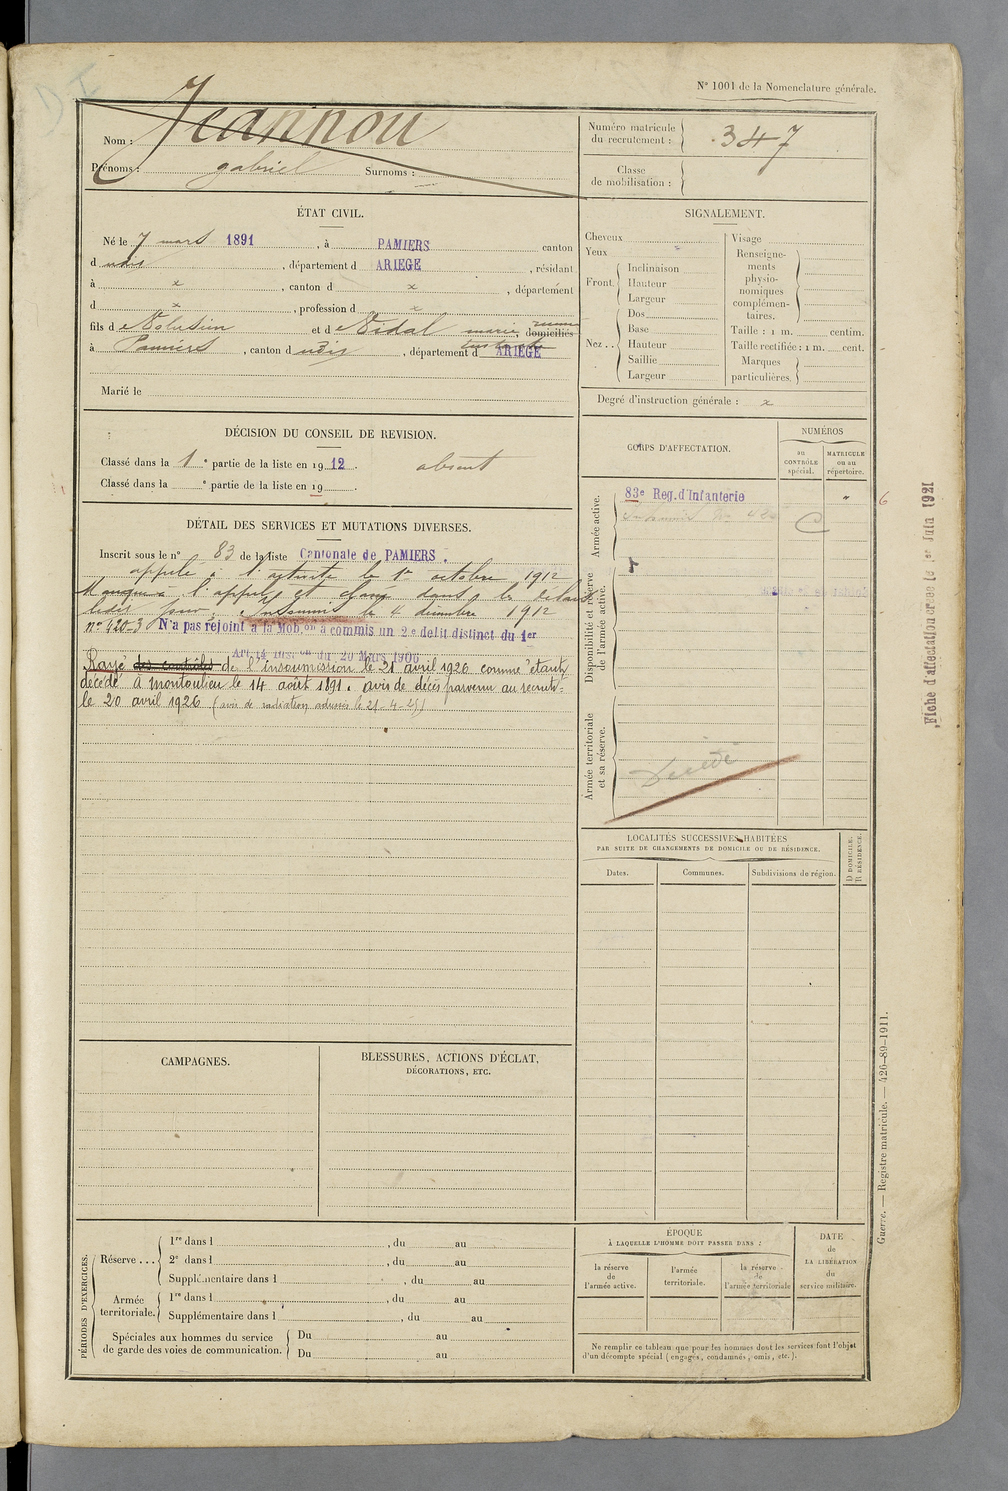 N° 1001 de la Nomenclature générale.
Nom : Jeannou
Prénoms : gabriel Surnoms :
Numéro matricule du recrutement : 347
Classe de mobilisation :
ÉTAT CIVIL.
Né le 7 mars 1891, à PAMIERS canton
d udis, département d ARIEGE, résidant
à x, canton d x, département
d x, profession d x
fils d Volusien et d Vidal marie domiciliés
à Pamiers, canton d udis, département d ARIEGE
Marié le
SIGNALEMENT.
Cheveux
Yeux
Front. Inclinaison
Hauteur
Largeur
Nez .. Dos
Base
Hauteur
Saillie
Largeur
Visage
Renseignements physionomiques complémentaires.
Taille : 1 m. centim.
Taille rectifiée : 1 m. cent.
Marques particulières.
Degré d'instruction générale : x
DÉCISION DU CONSEIL DE REVISION.
Classé dans la 1e partie de la liste en 1912. absent
Classé dans la e partie de la liste en 19 .
DÉTAIL DES SERVICES ET MUTATIONS DIVERSES.
Inscrit sous le n° 83 de la liste Cantonale de PAMIERS.
appelé à l'activité le 1er octobre 1912
Manque à l'appel et
Insoumis le 4 décembre 1912
n° 420-3 N'a pas rejoint à la Mob.on a commis un 2e délit distinct du 1er
Art. 14 Inst.on du 20 Mars 1906
Rayé des contrôles de l'insoumission le 21 avril 1926 comme étant
décédé à Montoulieu le 14 août 1891. avis de décès parvenu au recrutt
le 20 avril 1926 (avis de radiation adressé le 21-4-26)
CORPS D'AFFECTATION.
NUMÉROS
au CONTRÔLE spécial.
MATRICULE ou au répertoire.
Armée active.
83e Reg. d'Infanterie
"
6
C
Disponibilité et réserve de l'armée active.
Armée territoriale et sa réserve.
Décédé
Fiche d'affectation créée le 1er Juin 1921
LOCALITÉS SUCCESSIVES HABITÉES
PAR SUITE DE CHANGEMENTS DE DOMICILE OU DE RÉSIDENCE.
D DOMICILE. R RÉSIDENCE.
Dates.
Communes.
Subdivisions de région.
CAMPAGNES.
BLESSURES, ACTIONS D'ÉCLAT,
DÉCORATIONS, ETC.
PÉRIODES D'EXERCICES.
Réserve ... 1re dans l , du au
2e dans l , du au
Supplémentaire dans l , du au
Armée territoriale. 1re dans l , du au
Supplémentaire dans l , du au
Spéciales aux hommes du service de garde des voies de communication. Du au
Du au
ÉPOQUE
À LAQUELLE L'HOMME DOIT PASSER DANS :
la réserve de l'armée active.
l'armée territoriale.
la réserve de l'armée territoriale
DATE de LA LIBÉRATION du service militaire.
Ne remplir ce tableau que pour les hommes dont les services font l'objet
d'un décompte spécial (engagés, condamnés, omis, etc.).
Guerre. — Registre matricule. — 426-89-1911.